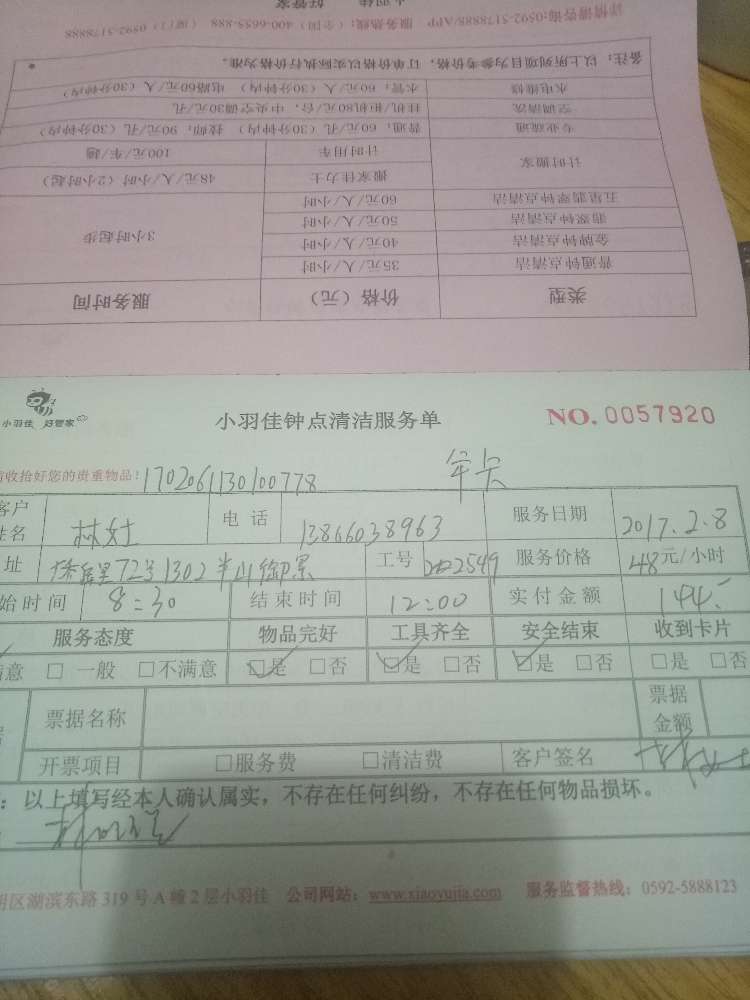 详情请咨询:0592-5178888/APP 服务热线：(全国) 400-6655-888 (厦门) 0592-5178888
备注：以上所列项目为参考价格，订单价格以实际执行价为准。
水电维修 水管：60元/人 (30分钟内) 电路60元/人 (30分钟内)
空调清洗 挂机/柜机80元/台，中央空调30元/孔
专业疏通 普通：60元/孔 (30分钟内) 技师：90元/孔 (30分钟内)
计时搬家 计时用车 100元/车/趟
搬家佳力士 48元/人/小时 (2小时起)
五星翡翠钟点清洁 60元/人/小时
翡翠钟点清洁 50元/人/小时
金牌钟点清洁 40元/人/小时 3小时起步
普通钟点清洁 35元/人/小时
类型 价格 (元) 服务时间
小羽佳 好管家
小羽佳钟点清洁服务单 NO. 0057920
收拾好您的贵重物品! 1702061130100778 年卡
客户姓名 电话 13866038963 服务日期 2017.2.8
址 72号1302半山御景 工号 2549 服务价格 48元/小时
始时间 8:30 结束时间 12:00 实付金额 144.
服务态度 物品完好 工具齐全 安全结束 收到卡片
满意 □ 一般 □不满意 ☑是 □否 ☑是 □否 ☑是 □否 □是 □否
票据名称 票据金额
开票项目 □服务费 □清洁费 客户签名
：以上填写经本人确认属实，不存在任何纠纷，不存在任何物品损坏。
明区湖滨东路319号A幢2层小羽佳 公司网站：www.xiaoyujia.com 服务监督热线：0592-5888123